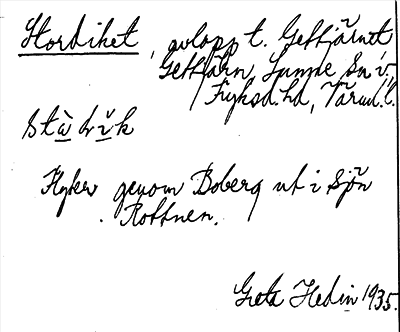 Stordiket, avlopp t. Gettjärnet,
Gettjärn, Sunne Sn i
Fryksd. hd, Värml. l.
Flyter genom Boberg ut i sjön
Rottnen.
Greta Hedin 1935.